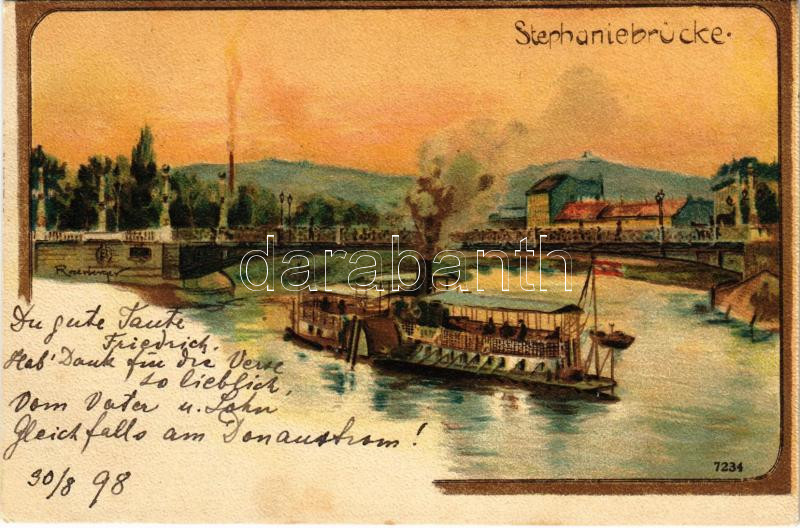 Stephaniebrücke.
darabanth
Rosenberger
Du gute Tante
Friedrich.
Hab' Dank für die Verse
so lieblich,
Vom Vater u. Sohn
Gleichfalls am Donaustrom!
30/8 98
7234